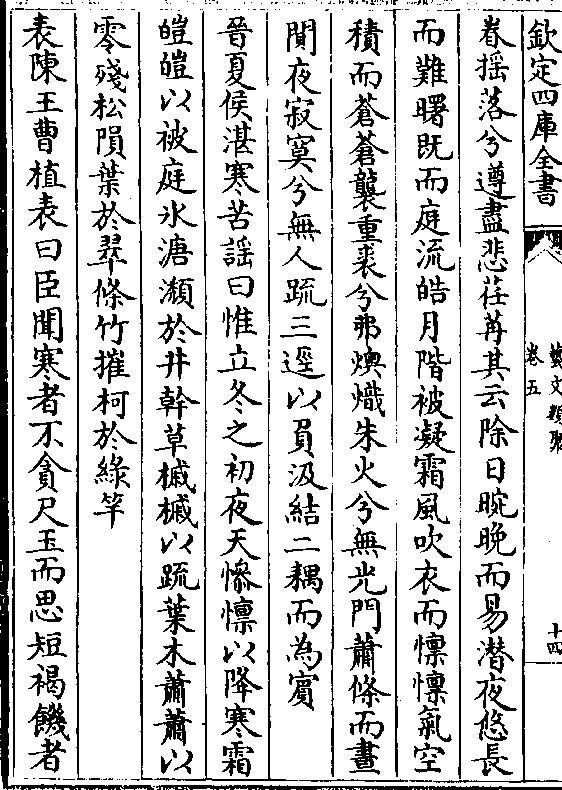 欽定四庫全書
藝文類聚
卷五
十四
眷揺落兮遵盡悲荏苒其云除日晼晚而易潛夜悠長
而難曙既而庭流皓月階被凝霜風吹衣而懍懍氣空
積而蒼蒼襲重裘兮弗燠熾朱火兮無光門蕭條而晝
閴夜寂寞兮無人疏三逕以負汲結二耦而為賓
晉夏侯湛寒苦謡曰惟立冬之初夜天慘懍以降寒霜
皚皚以被庭氷溏瀬於井幹草槭槭以疏葉木蕭蕭以
零殘松隕葉於翠條竹摧柯於綠竿
表陳王曹植表曰臣聞寒者不貪尺玉而思短褐饑者